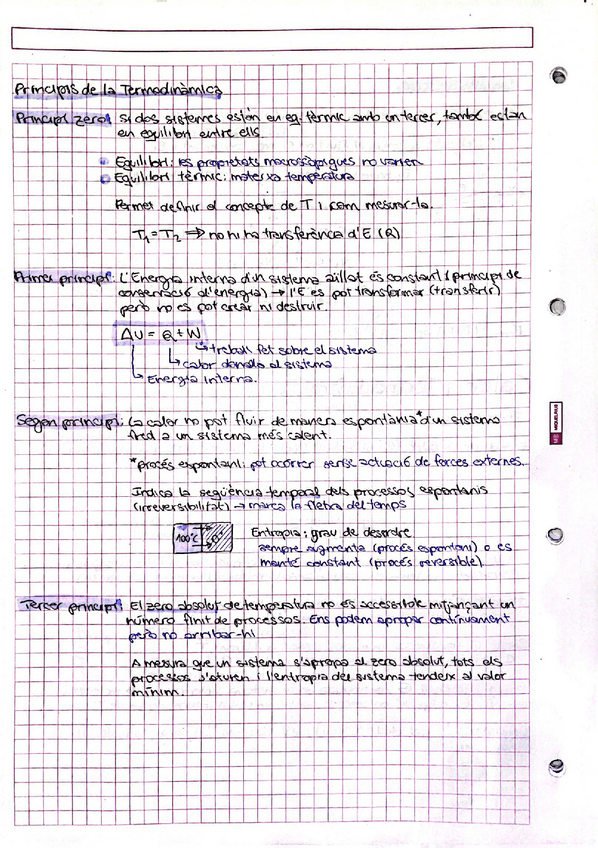 Principis de la Termodinàmica
Principi zero: Si dos sistemes estan en eq. tèrmic amb un tercer, també estan
en equilibri entre ells
Equilibri: les propietats macroscòpiques no varien
Equilibri tèrmic: mateixa temperatura
Permet definir el concepte de T i com mesurar-la.
T₁ = T₂ ⇒ no hi ha transferència d'E (Q)
Primer principi: L'Energia interna d'un sistema aïllat és constant (principi de
conservació d'energia) → l'E es pot transformar (transferir)
però no es pot crear ni destruir.
ΔU = Q + W
treball fet sobre el sistema
calor donada al sistema
Energia interna.
Segon principi: La calor no pot fluir de manera espontània* d'un sistema
fred a un sistema més calent.
*procés espontani: pot ocórrer sense actuació de forces externes.
Indica la seqüència temporal dels processos espontanis
(irreversibilitat) → marca la fletxa del temps
100°C
Entropia: grau de desordre
sempre augmenta (procés espontani) o es
manté constant (procés reversible)
Tercer principi: El zero absolut de temperatura no és accessible mitjançant un
número finit de processos. Ens podem apropar contínuament
però no arribar-hi
A mesura que un sistema s'apropa al zero absolut, tots els
processos s'aturen i l'entropia del sistema tendeix al valor
mínim.
MIQUELRIUS